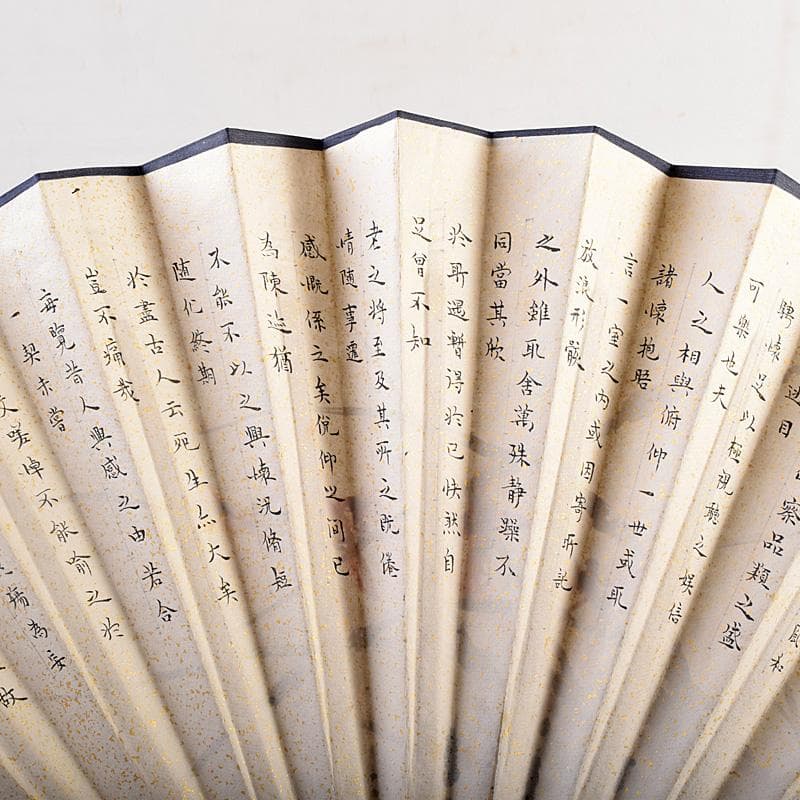 風和
察品類之盛
遊目
騁懷足以極視聽之娱信
可樂也夫
人之相與俯仰一世或取
諸懷抱晤
言一室之内或因寄所託
放浪形骸
之外雖取舍萬殊静躁不
同當其欣
於所遇暫得於己快然自
足曾不知
老之將至及其所之既倦
情隨事遷
感慨係之矣俛仰之間已
為陳迹猶
不能不以之興懷況脩短
随化終期
於盡古人云死生亦大矣
豈不痛哉
每覽昔人興感之由若合
一契未嘗
文嗟悼不能喻之於
殤為妄
故